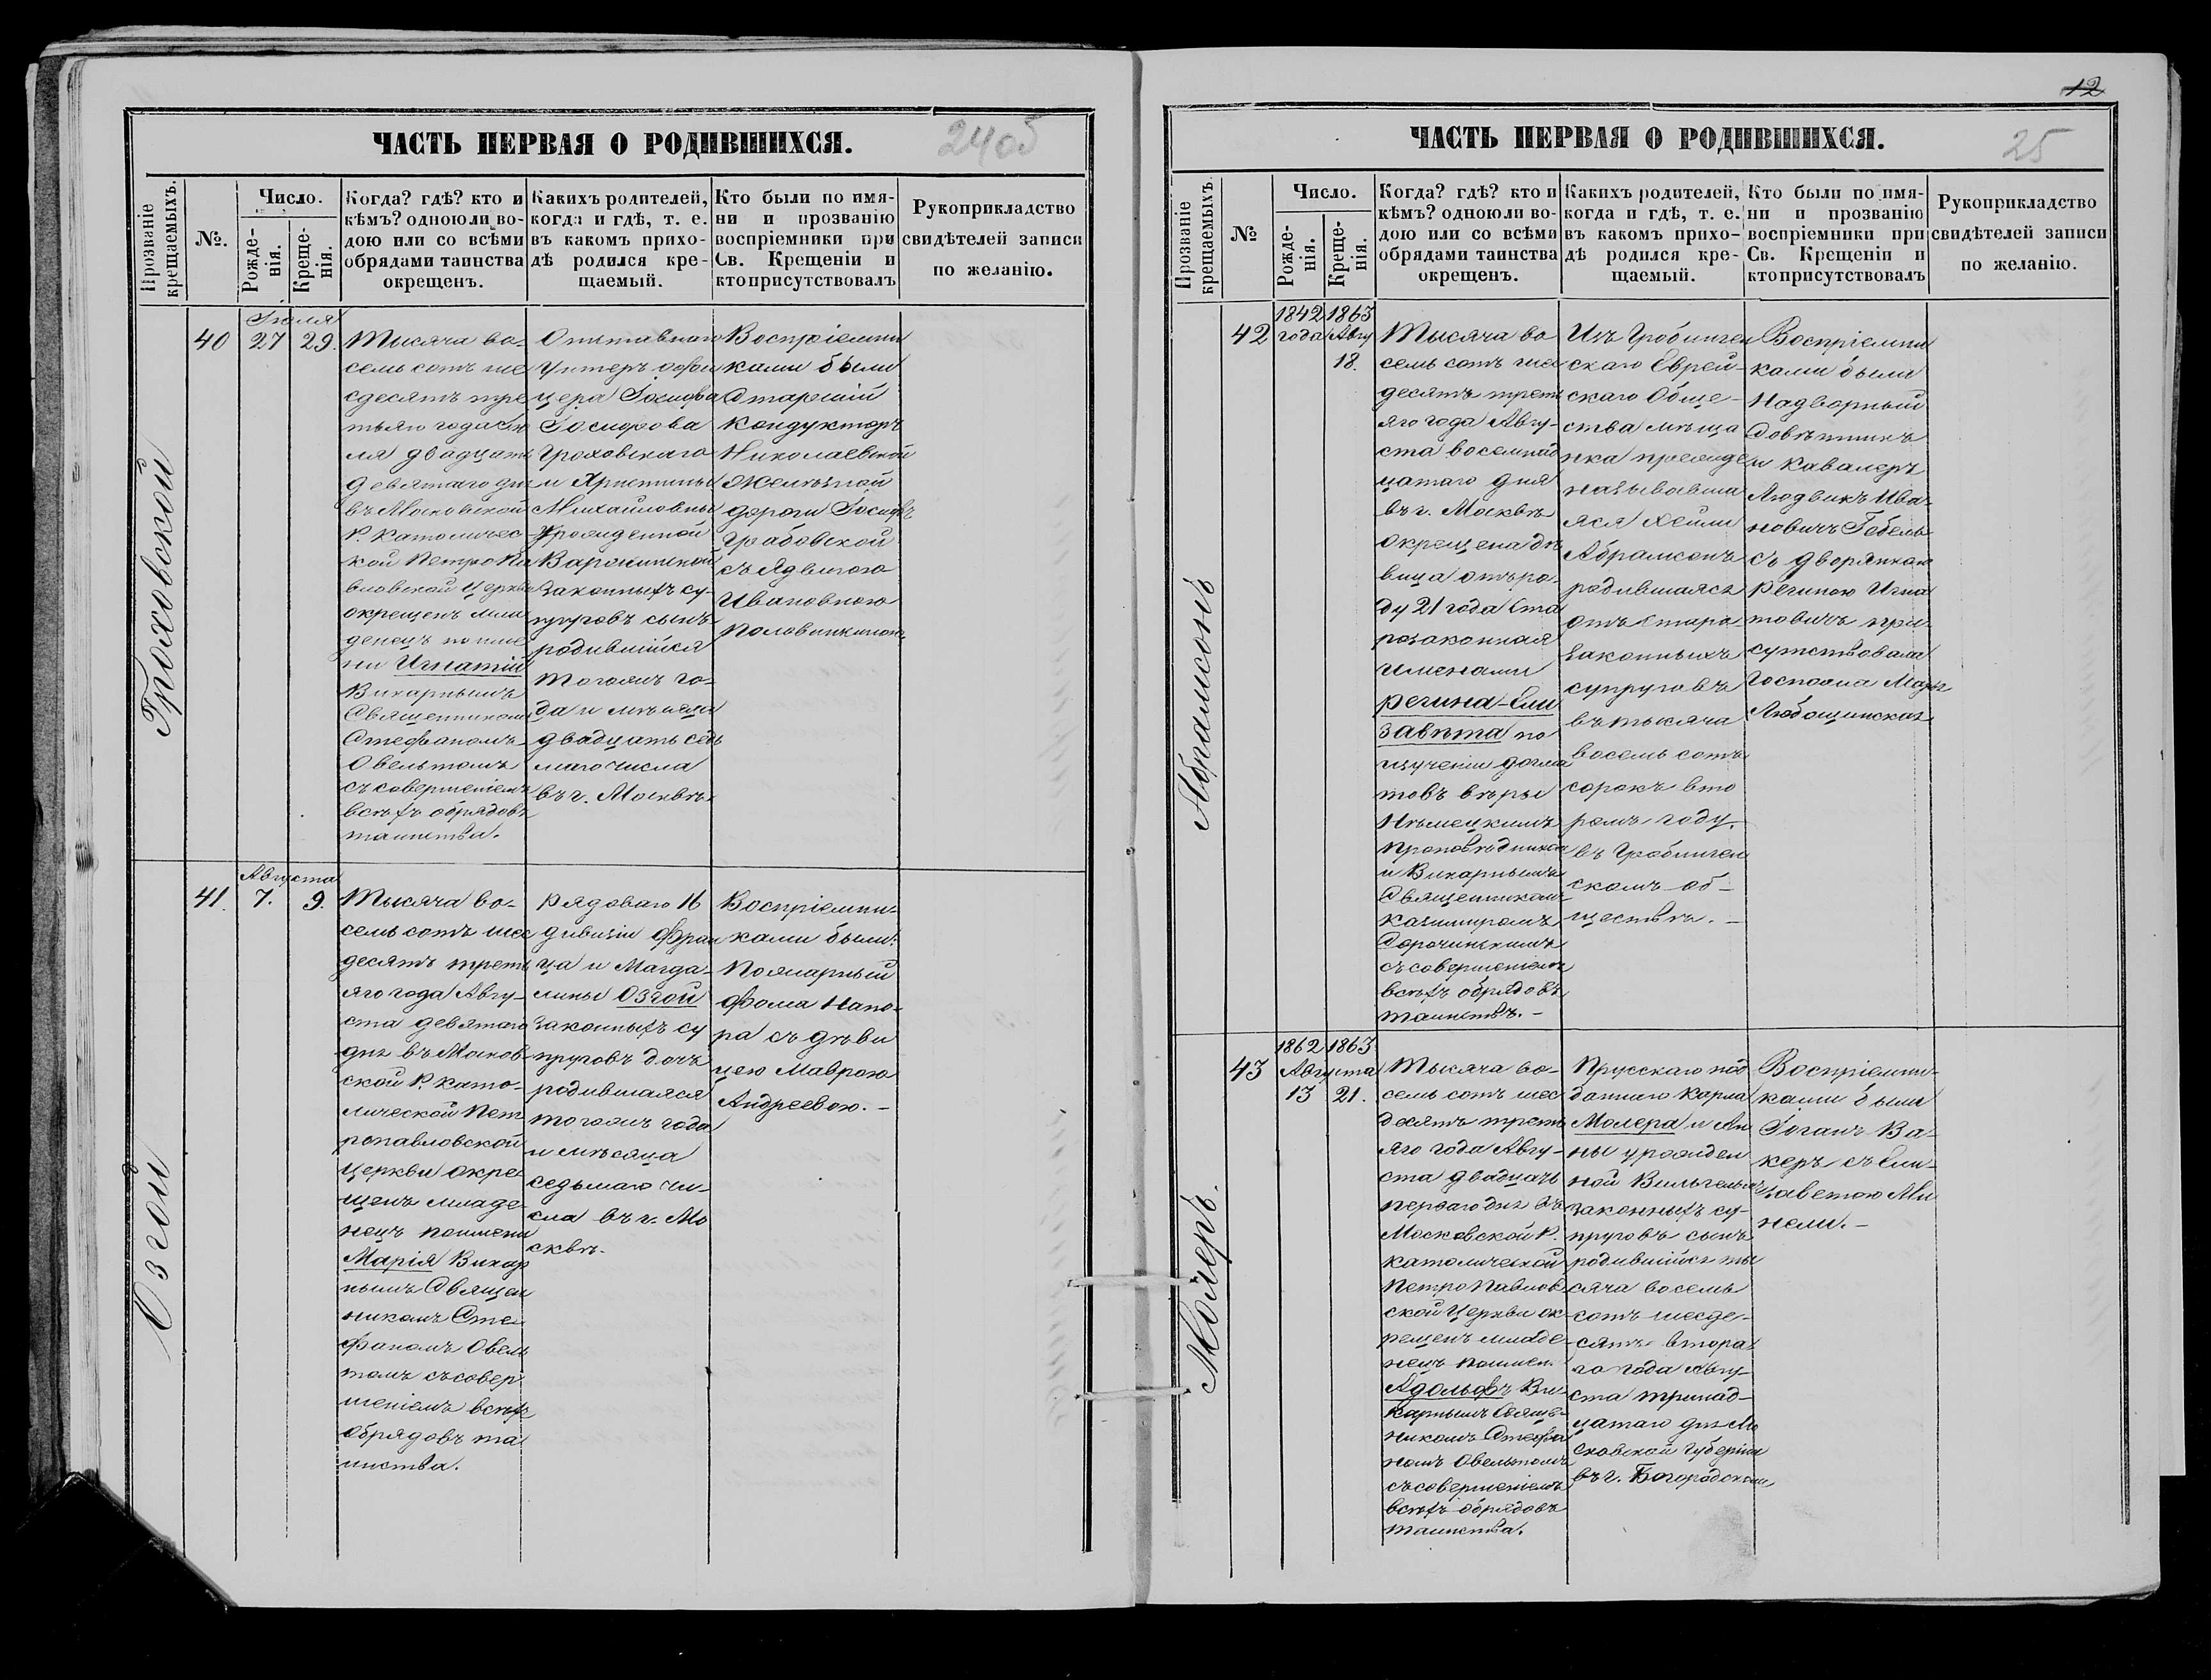 ЧАСТЬ ПЕРВАЯ О РОДИВШИХСЯ.
24об
Прозваніе крещаемыхъ.
№.
Число.
Рожде-
нія.
Креще-
нія.
Когда? гдѣ? кто и
кѣмъ? одноюли во-
дою или со всѣми
обрядами таинства
окрещенъ.
Какихъ родителей,
когда и гдѣ, т. е.
въ какомъ прихо-
дѣ родился кре-
щаемый.
Кто были по имя-
ни и прозванію
воспріемники при
Св. Крещеніи и
ктоприсутствовалъ
Рукоприкладство
свидѣтелей записи
по желанію.
Гроховской
40
Іюля
27 29.
Тысяча во-
семь сотъ ше
сдесятъ тре
тьяго года Ію
ля двадцать
девятаго дня
въ Московской
Р. Католичес-
кой Петро Па
вловской Церкви
окрещенъ мла
денецъ по име
ни Игнатій
Викарнымъ
Священникомъ
Стефаномъ
Овельтомъ
съ совершеніемъ
всѣхъ обрядовъ
таинства.
Отставнаго
Унтеръ офи
цера Іосифа
Іосифова
Гроховскаго
и Христины
Михайловны
Урожденной
законныхъ су-
пруговъ сынъ
родившійся
тогожъ го-
да и мѣсяца
двадцать седь
маго числа
въ г. Москвѣ.
Воспріемни
ками были
Старшій
Кондукторъ
Николаевской
Желѣзной
дороги Іосифъ
Грабовской
съ Ядвигою
Ивановною
Озгой
41.
Августа
7. 9.
Тысяча во-
семь сотъ шес
десятъ треть
яго года Авгу-
ста девятаго
дня въ Москов-
ской Р. Като-
лической Пет
ропавловской
Церкви окре-
щенъ младе-
нецъ по имени
Марія Викар
нымъ Священ
никомъ Сте-
фаномъ Овель
томъ съ совер-
шеніемъ всѣхъ
обрядовъ та
инства.
Рядоваго 16
дивизіи Фран
ца и Магда-
лины Озгой
законныхъ су
пруговъ дочь
родившаяся
тогожъ года
и мѣсяца
седьмаго чи-
сла въ г. Мо
сквѣ.
Воспріемни-
ками были:
Пожарный
Фома Напо-
ра съ дѣви
цею Маврою
Андреевою. -
12
ЧАСТЬ ПЕРВАЯ О РОДИВШИХСЯ.
25
Прозваніе крещаемыхъ.
№
Число.
Рожде-
нія.
Креще-
нія.
Когда? гдѣ? кто и
кѣмъ? одноюли во-
дою или со всѣми
обрядами таинства
окрещенъ.
Какихъ родителей,
когда и гдѣ, т. е.
въ какомъ прихо-
дѣ родился кре-
щаемый.
Кто были по имя-
ни и прозванію
воспріемники при
Св. Крещеніи и
ктоприсутствовалъ
Рукоприкладство
свидѣтелей записи
по желанію.
Абрамсонъ
42
1842 1863
года Авгу
18.
Тысяча во
семь сотъ шес
десятъ треть
яго года Авгу-
ста восемнад
цатаго дня
въ г. Москвѣ
окрещена дѣ
вица отъ ро-
ду 21 года Ста
розаконная
именами
Регина-Ели
завѣта по
изученіи догма
товъ вѣры
Нѣмецкимъ
Проповѣдникомъ
и Викарнымъ
Священникомъ
Казимиромъ
съ совершеніемъ
всѣхъ обрядовъ
таинствъ. -
Изъ Гробинген
скаго Еврей-
скаго Обще-
ства мѣща
нка прежде
называвша
яся Хейли
Абрамсонъ
родившаяся
отъ старо
законныхъ
супруговъ
въ тысяча
восемь сотъ
сорокъ вто
ромъ году.
въ Гробинген
скомъ об-
ществѣ. -
Воспріемни
ками были
Надворный
Совѣтникъ
и Кавалеръ
Людвикъ Ива-
новичъ Гебель
съ дворянкою
Региною Игна
товичъ при-
сутствовала
Госпожа Марья
Любощинская
Молеръ.
43
1862 1863
Августа
13 21.
Тысяча во-
семь сотъ шес
десятъ треть
яго года Авгу-
ста двадцать
перваго дня въ
Московской Р.
Католической
Петро Павлов
ской Церкви ок-
рещенъ младе-
нецъ по имен.
Адольфъ Ви-
карнымъ Свяще-
никомъ Стефа
номъ Овельтомъ
съ совершеніемъ
всѣхъ обрядовъ
таинства.
Прусскаго под
даннаго Карла
Молера и Ан
ны урожден
ной Вильгельмъ
законныхъ су-
пруговъ сынъ
родившійся ты
сяча восемь
сотъ шесде-
сятъ втора
го года Авгу-
ста тринад-
цатаго дня Мо
сковской Губерніи
въ г. Богородскомъ
Воспріемни-
ками были
Іоганъ Ва-
керъ съ Ели-
заветою Ми
нели. -